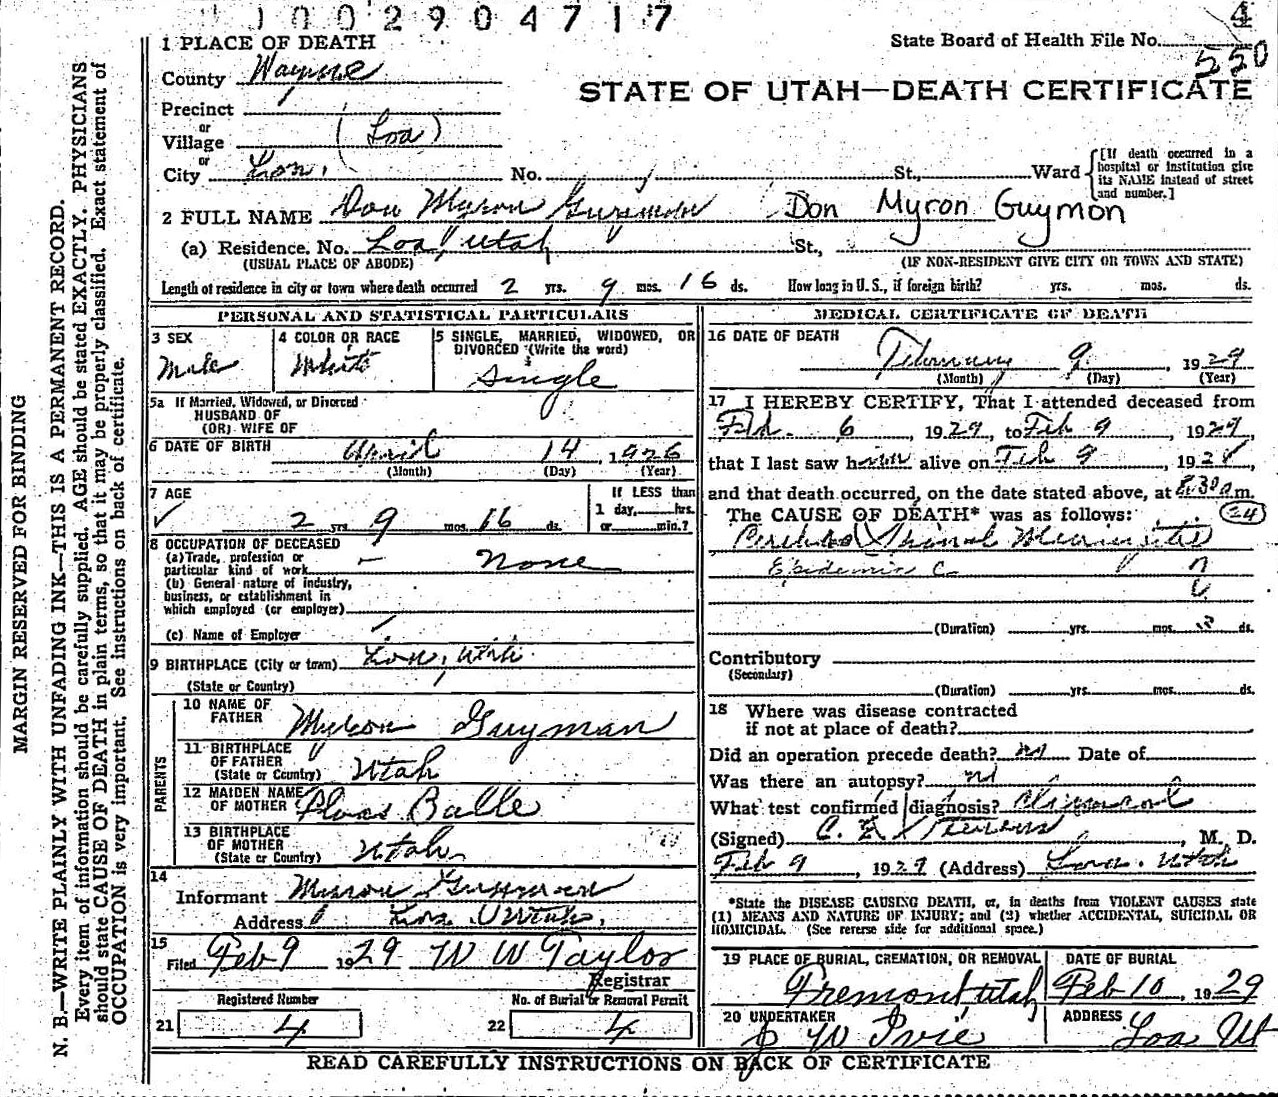 1002904717
4
1 PLACE OF DEATH
State Board of Health File No.
550
County Wayne
STATE OF UTAH—DEATH CERTIFICATE
Precinct
or
Village (Loa)
or
City Loa, No. St., Ward
[If death occurred in a hospital or institution give its NAME instead of street and number.]
2 FULL NAME Don Myron Guymon Don Myron Guymon
(a) Residence. No. Loa, Utah St.,
(USUAL PLACE OF ABODE) (IF NON-RESIDENT GIVE CITY OR TOWN AND STATE)
Length of residence in city or town where death occurred 2 yrs. 9 mos. 16 ds. How long in U. S., if foreign birth? yrs. mos. ds.
PERSONAL AND STATISTICAL PARTICULARS
3 SEX Male
4 COLOR OR RACE White
5 SINGLE, MARRIED, WIDOWED, OR DIVORCED (Write the word)
single
5a If Married, Widowed, or Divorced
HUSBAND OF
(OR) WIFE OF
6 DATE OF BIRTH April 14, 1926
(Month) (Day) (Year)
7 AGE
2 yrs 9 mos 16 ds.
If LESS than
1 day, hrs.
or min.?
8 OCCUPATION OF DECEASED
(a) Trade, profession or
particular kind of work None
(b) General nature of industry,
business, or establishment in
which employed (or employer)
(c) Name of Employer
9 BIRTHPLACE (City or town) Loa, Utah
(State or Country)
PARENTS
10 NAME OF FATHER Myron Guyman
11 BIRTHPLACE OF FATHER
(State or Country) Utah
12 MAIDEN NAME OF MOTHER
13 BIRTHPLACE OF MOTHER
(State or Country) Utah
14
Informant Myron Guymon
Address Loa Utah.
15
Filed Feb 9 1929 W W Taylor
Registrar
Registered Number
21 4
No. of Burial or Removal Permit
22 4
MEDICAL CERTIFICATE OF DEATH
16 DATE OF DEATH
February 9, 1929
(Month) (Day) (Year)
17 I HEREBY CERTIFY, That I attended deceased from
Feb. 6, 1929, to Feb 9, 1929
that I last saw him alive on Feb 9, 192
and that death occurred, on the date stated above, at 8:30 a.m.
The CAUSE OF DEATH* was as follows: 24
Spinal Meningitis
Epidemic C.
(Duration) yrs. mos. ds.
Contributory
(Secondary)
(Duration) yrs. mos. ds.
18 Where was disease contracted
if not at place of death?
Did an operation precede death? no Date of
Was there an autopsy? no
What test confirmed diagnosis? clinical
(Signed) C. E. , M. D.
Feb 9, 1929 (Address) Loa. Utah
*State the DISEASE CAUSING DEATH, or, in deaths from VIOLENT CAUSES state
(1) MEANS AND NATURE OF INJURY; and (2) whether ACCIDENTAL, SUICIDAL OR
HOMICIDAL. (See reverse side for additional space.)
19 PLACE OF BURIAL, CREMATION, OR REMOVAL
Fremont, Utah
DATE OF BURIAL
Feb 10, 1929
20 UNDERTAKER
J W Ivie
ADDRESS
Loa Ut
READ CAREFULLY INSTRUCTIONS ON BACK OF CERTIFICATE
MARGIN RESERVED FOR BINDING
N. B.—WRITE PLAINLY WITH UNFADING INK—THIS IS A PERMANENT RECORD.
Every item of information should be carefully supplied. AGE should be stated EXACTLY. PHYSICIANS
should state CAUSE OF DEATH in plain terms, so that it may be properly classified. Exact statement of
OCCUPATION is very important. See instructions on back of certificate.